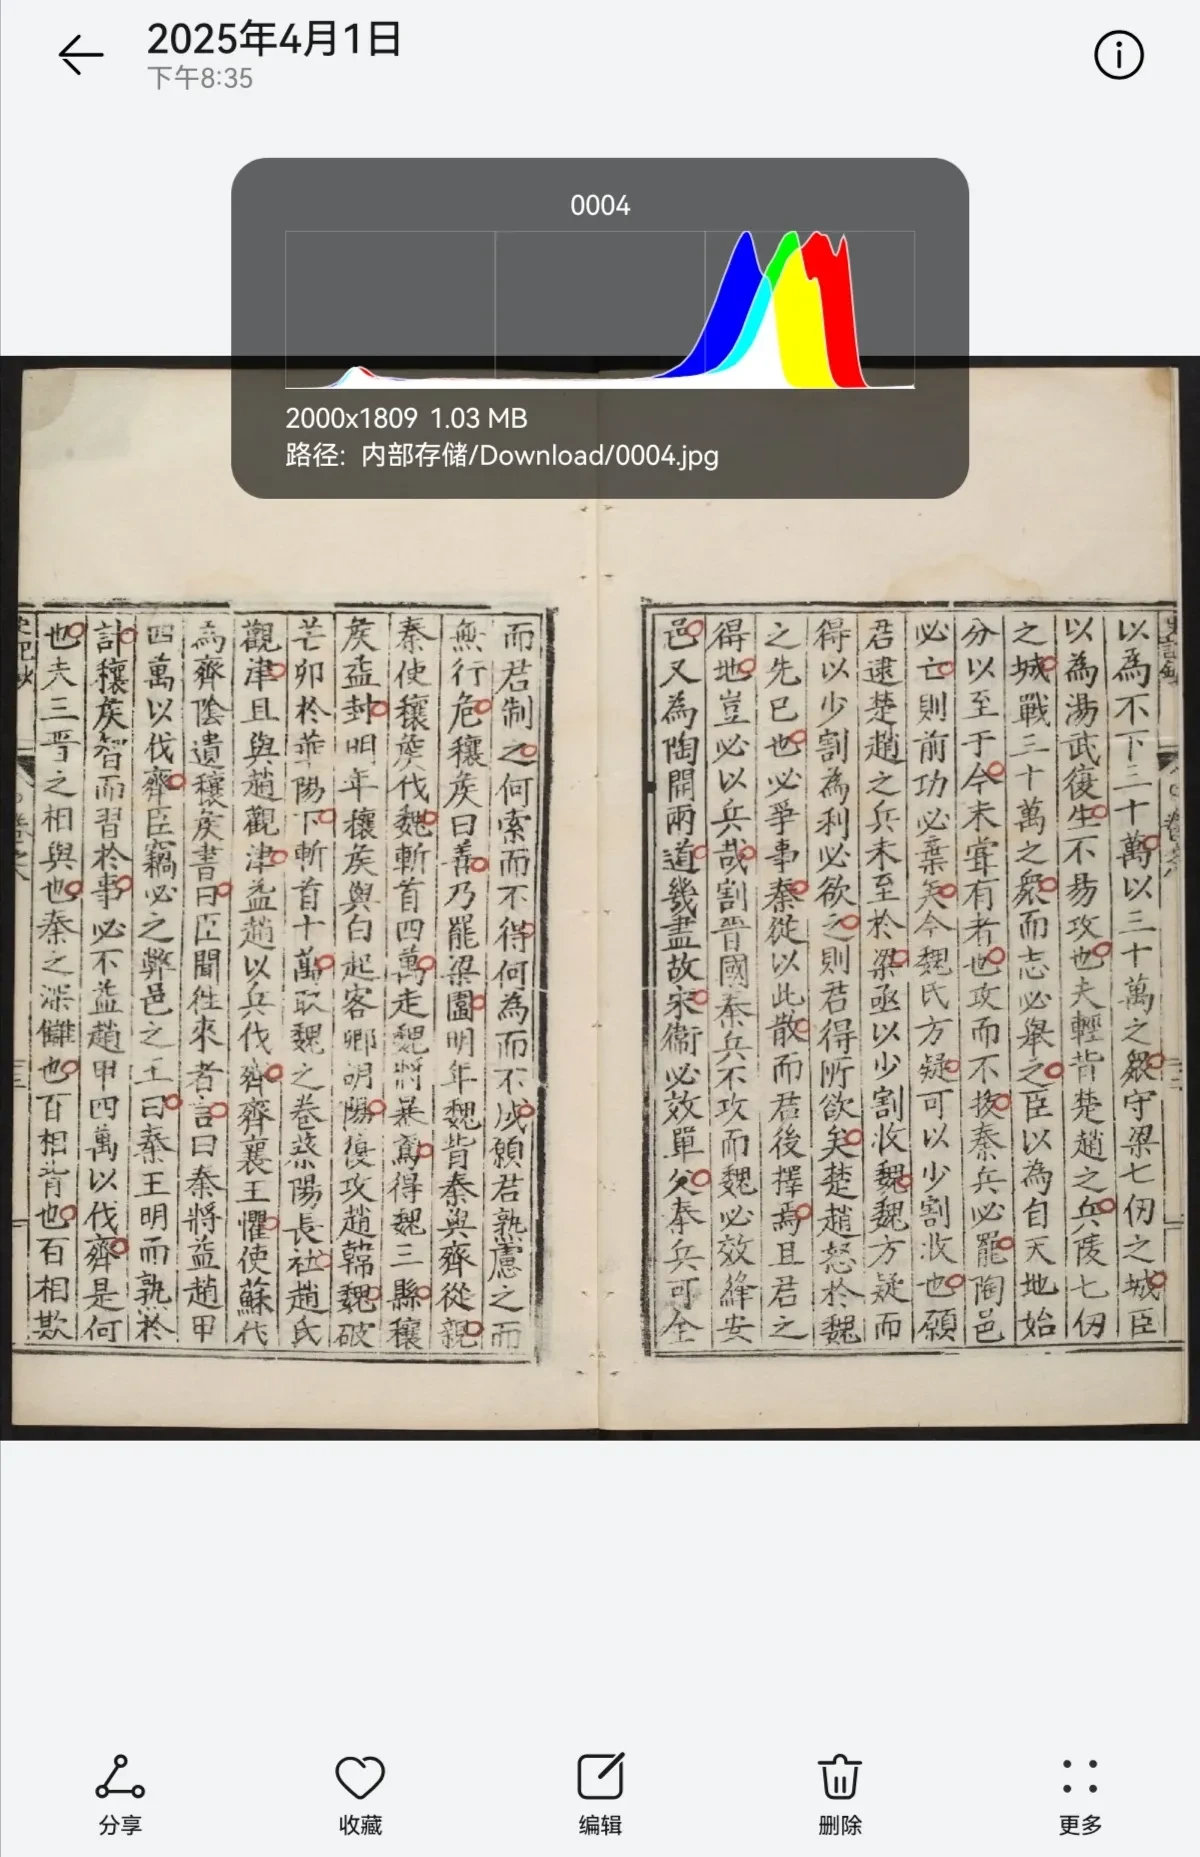 2025年4月1日
下午8:35
0004
2000x1809 1.03 MB
路径: 内部存储/Download/0004.jpg
以為不下三十萬以三十萬之衆守梁七仞之城臣
以為湯武復生不易攻也夫輕背楚趙之兵陵七仞
之城戰三十萬之衆而志必舉之臣以為自天地始
分以至于今未嘗有者也攻而不拔秦兵必罷陶邑
必亡則前功必棄矣今魏氏方疑可以少割收也願
君逮楚趙之兵未至於梁亟以少割收魏魏方疑而
得以少割為利必欲之則君得所欲矣楚趙怒於魏
之先已也必爭事秦從以此散而君後擇焉且君之
得地豈必以兵哉割晉國秦兵不攻而魏必效絳安
邑又為陶開兩道幾盡故宋衛必效單父秦兵可全
而君制之何索而不得何為而不成願君熟慮之而
無行危穰矦曰善乃罷梁圍明年魏背秦與齊從親
秦使穰矦伐魏斬首四萬走魏將暴鳶得魏三縣穰
矦益封明年穰矦與白起客卿明陽復攻趙韓魏破
芒卯於華陽下斬首十萬取魏之卷蔡陽長社趙氏
觀津且與趙觀津益趙以兵伐齊齊襄王懼使蘇代
為齊陰遺穰矦書曰臣聞往來者言曰秦將益趙甲
四萬以伐齊臣竊必之弊邑之王曰秦王明而熟於
計穰矦智而習於事必不益趙甲四萬以伐齊是何
也夫三晉之相與也秦之深讎也百相背也百相欺
分享 收藏 编辑 删除 更多